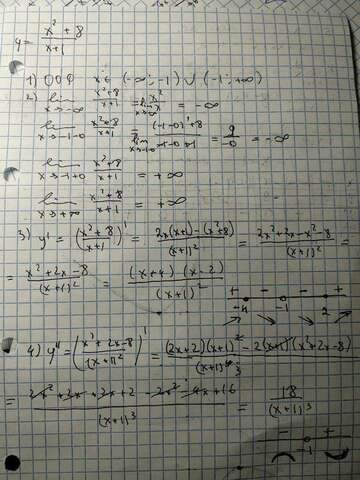 y = (x² + 8)/(x+1)
1) ООФ x ∈ (-∞; -1) ∪ (-1; +∞)
2) lim x→-∞ (x²+8)/(x+1) = lim x→∞ x²/x = -∞
lim x→-1-0 (x²+8)/(x+1) = lim x→-1-0 ((-1-0)²+8)/(-1-0+1) = 9/-0 = -∞
lim x→-1+0 (x²+8)/(x+1) = +∞
lim x→+∞ (x²+8)/(x+1) = +∞
3) y' = ((x²+8)/(x+1))' = (2x(x+1)-(x²+8))/(x+1)² = (2x²+2x-x²-8)/(x+1)² =
= (x²+2x-8)/(x+1)² = ((x+4)(x-2))/(x+1)²
+ - - +
-4 -1 2
4) y'' = ((x²+2x-8)/(x+1)²)' = ((2x+2)(x+1)² - 2(x+1)(x²+2x-8))/(x+1)⁴ ³
= (2x²+2x+2x+2-2x²-4x+16)/(x+1)³ = 18/(x+1)³
- +
-1